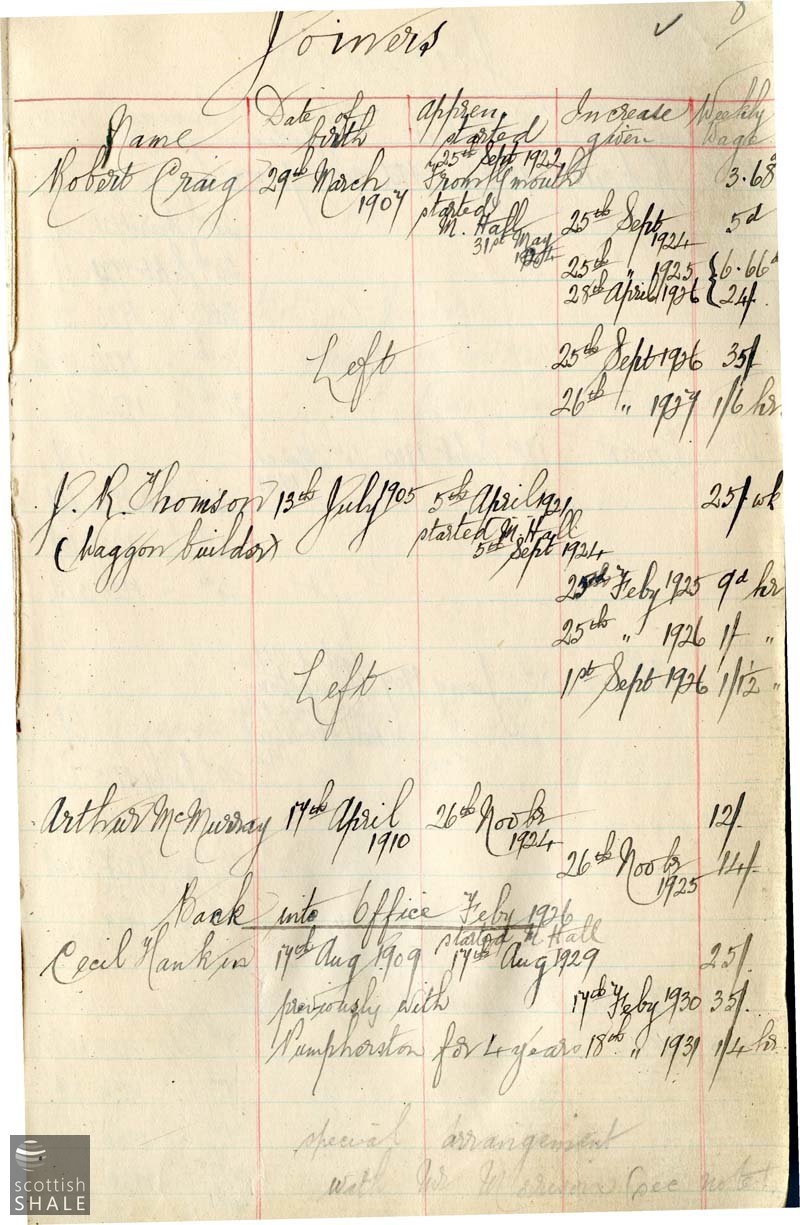 Joiners ✓ 8
Name Date of birth Appren started Increase given Weekly wage
Robert Craig 29th March 1907 25th Sept 1922 3.68d
From 4 months
started M. Hall 31st May 1924 25th Sept 1924 5d
25th " 1925 6.66d
28th April 1926 24/-
Left 25th Sept 1926 35/-
26th " 1927 1/6 hr
J. R. Thomson 13th July 1905 5th April 1921 25/- wk
(Waggon builder) started M. Hall 5th Sept 1924
25th Feby 1925 9d hr
25th " 1926 1/- "
Left 1st Sept 1926 1/1½ "
Arthur McMurray 17th April 1910 26th Novbr 1924 12/-
26th Novbr 1925 14/-
Back into Office Feby 1926
started M Hall
Cecil Hankin 17th Aug 1909 17th Aug 1929 25/-
previously with 17th Feby 1930 35/-
Pumpherston for 4 years 18th " 1931 1/4 hr
special arrangement
with Mr Morison (see note)
scottish
SHALE